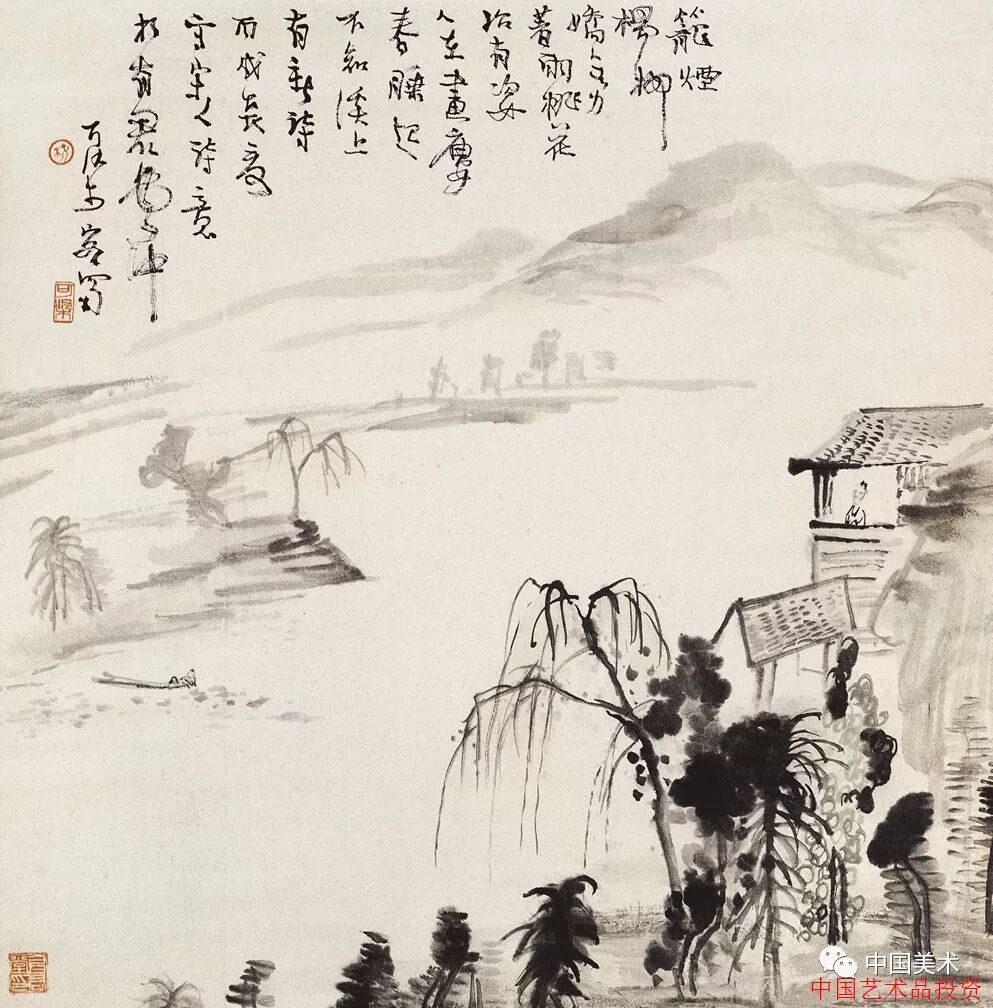 籠煙
楊柳
嬌無力
著雨桃花
有姿
人在畫廔
春睡起
不知溪上
有新詩
丙戌長夏
寫宋人詩意
有君
客蜀
可染
中国美术
中国艺术品投资